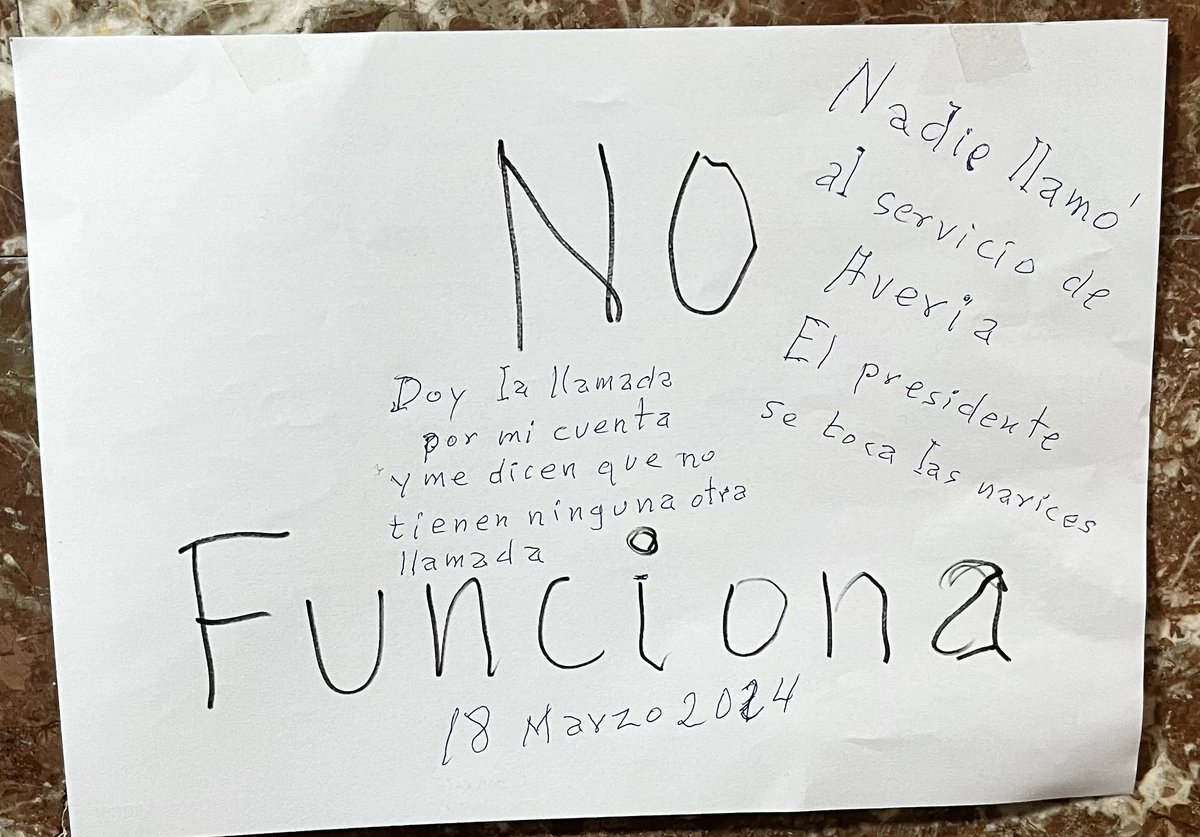 NO
Funciona
Doy la llamada
por mi cuenta
y me dicen que no
tienen ninguna otra
llamada
18 Marzo 2024
Nadie llamó
al servicio de
Averia
El presidente
se toca las narices